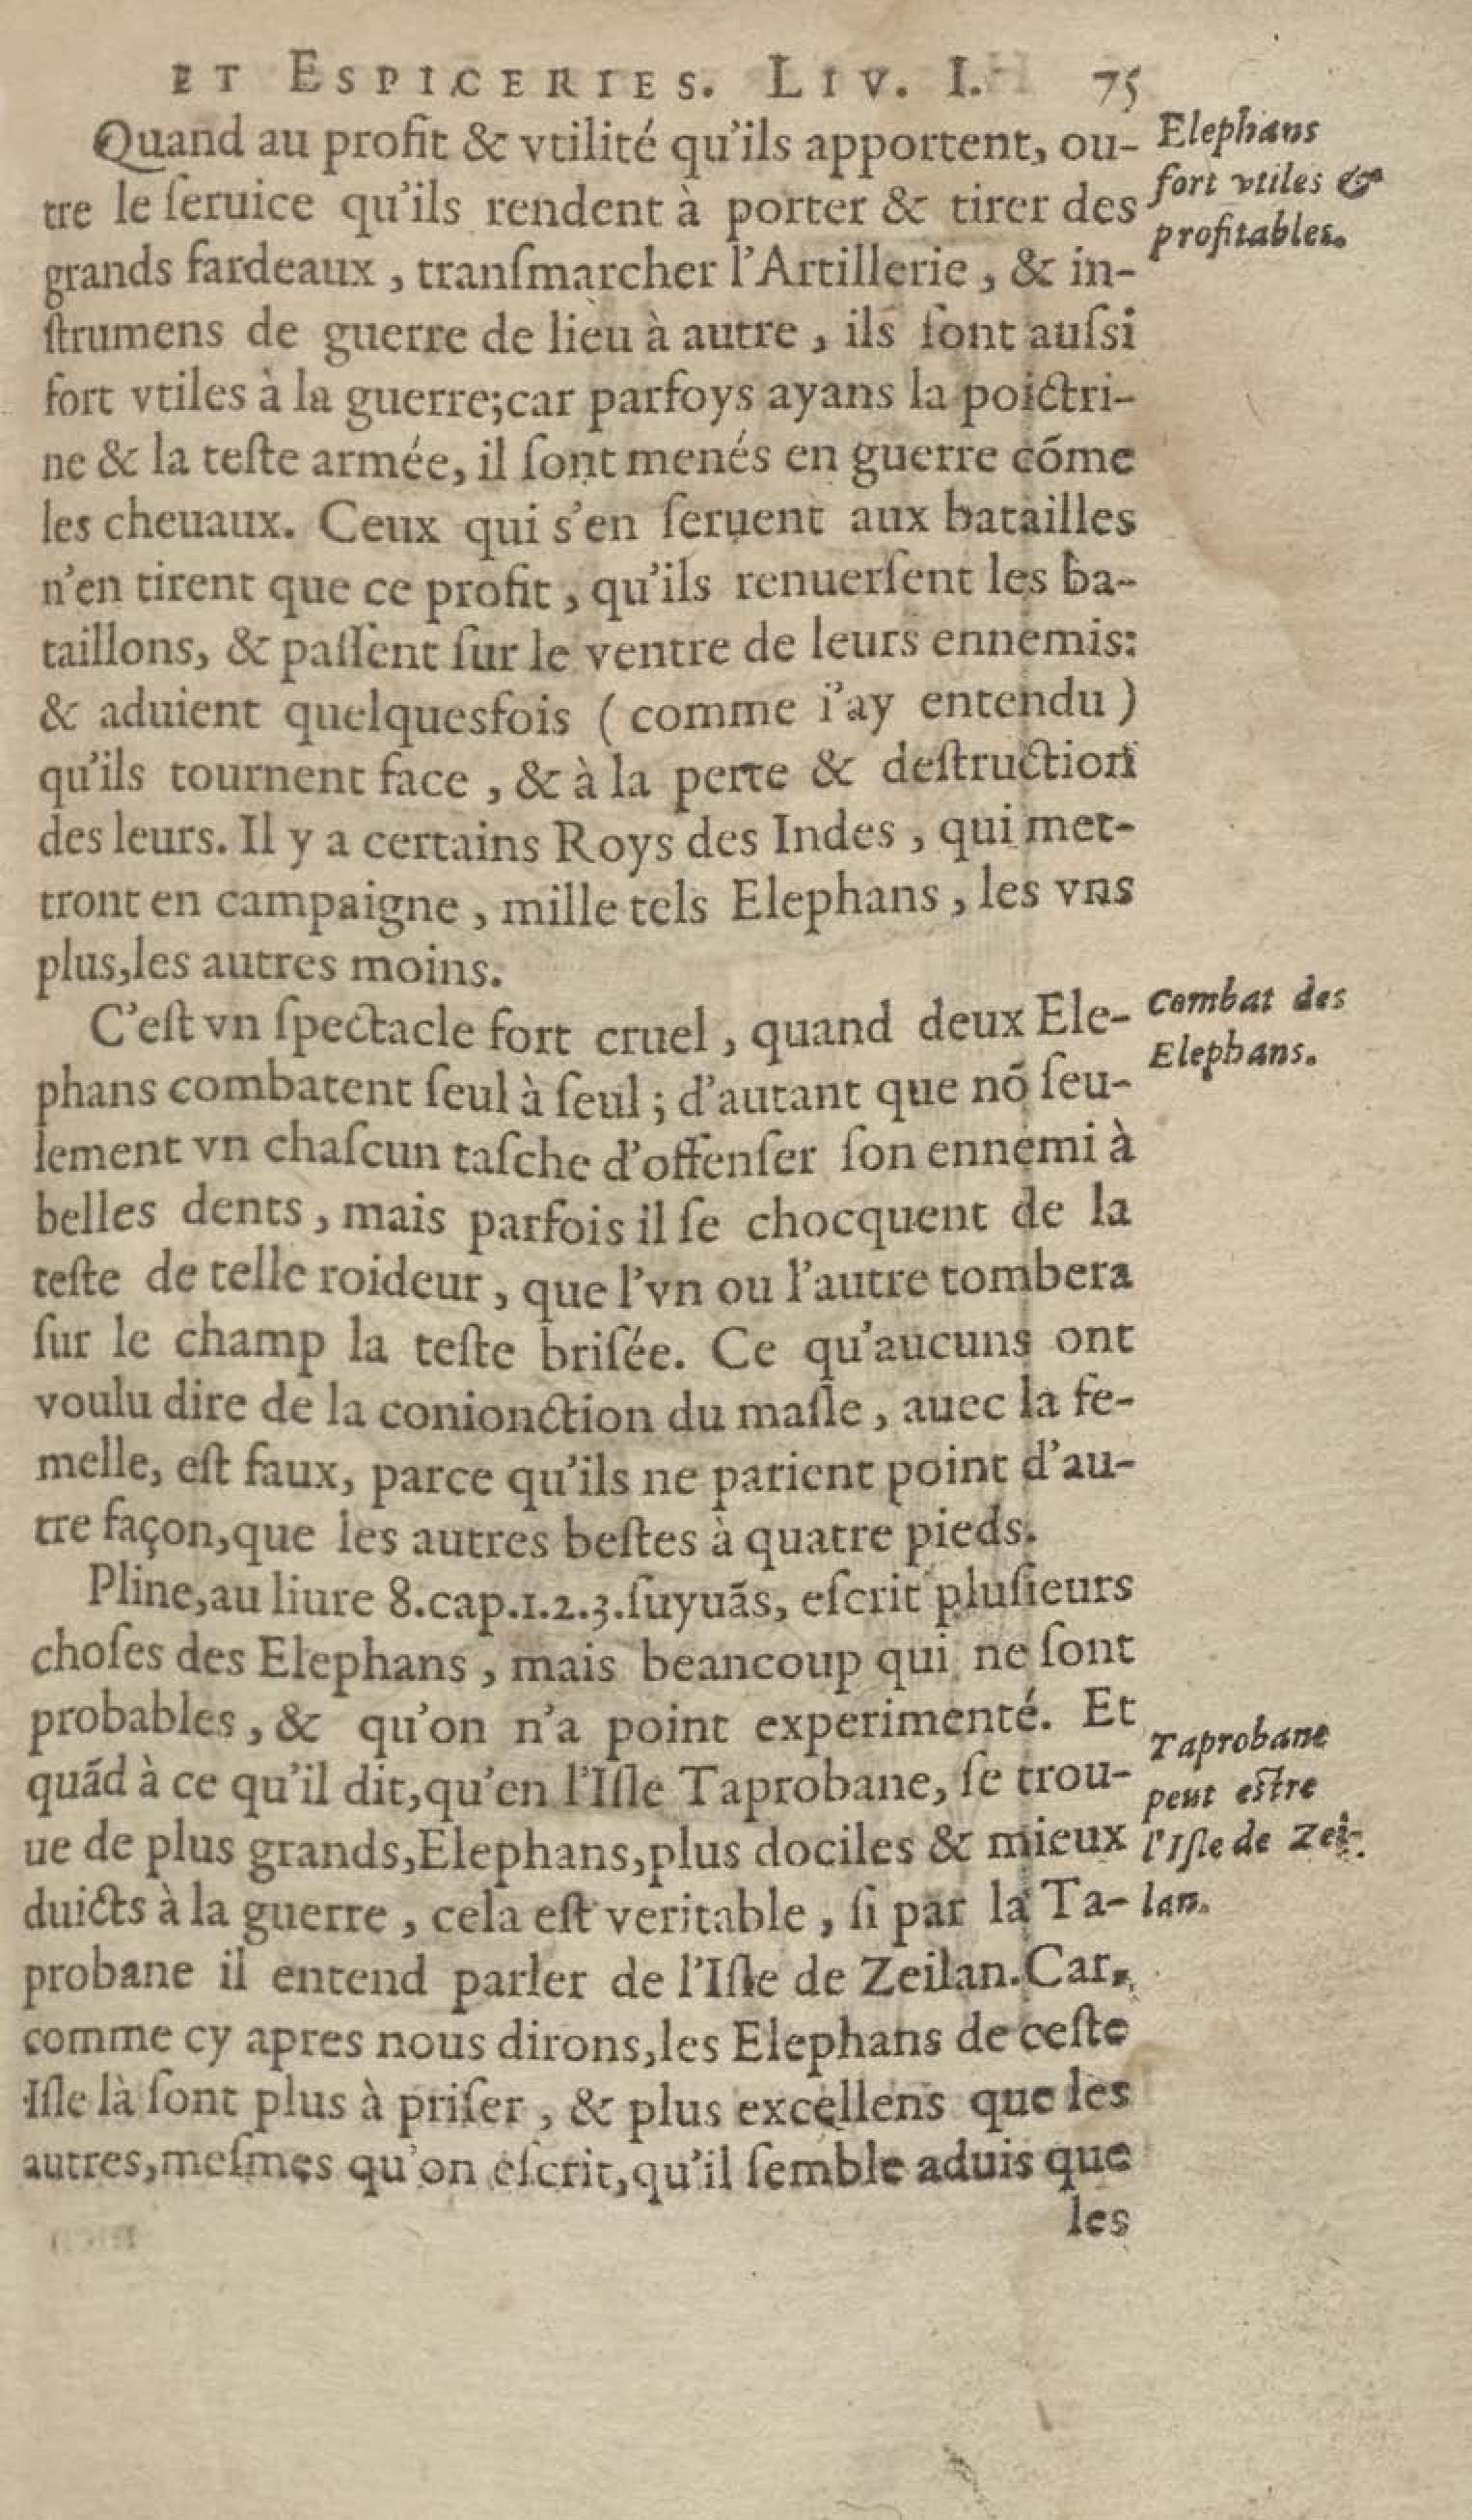 ET ESPICERIES. LIV. I. 75
Quand au profit & vtilité qu'ils apportent, ou-
tre le ſeruice qu'ils rendent à porter & tirer des
grands fardeaux, tranſmarcher l'Artillerie, & in-
ſtrumens de guerre de lieu à autre, ils ſont auſsi
fort vtiles à la guerre;car parfoys ayans la poictri-
ne & la teſte armée, il ſont menés en guerre cõme
les cheuaux. Ceux qui s'en ſeruent aux batailles
n'en tirent que ce profit, qu'ils renuerſent les ba-
taillons, & paſſent ſur le ventre de leurs ennemis:
& aduient quelquesfois (comme i'ay entendu)
qu'ils tournent face, & à la perte & deſtruction
des leurs. Il y a certains Roys des Indes, qui met-
tront en campaigne, mille tels Elephans, les vns
plus,les autres moins.
C'eſt vn ſpectacle fort cruel, quand deux Ele-
phans combatent ſeul à ſeul; d'autant que nõ ſeu-
lement vn chaſcun taſche d'offenſer ſon ennemi à
belles dents, mais parfois il ſe chocquent de la
teſte de telle roideur, que l'vn ou l'autre tombera
ſur le champ la teſte briſée. Ce qu'aucuns ont
voulu dire de la conionction du maſle, auec la fe-
melle, eſt faux, parce qu'ils ne parient point d'au-
tre façon,que les autres beſtes à quatre pieds.
Pline,au liure 8.cap.1.2.3.ſuyuãs, eſcrit pluſieurs
choſes des Elephans, mais beancoup qui ne ſont
probables, & qu'on n'a point experimenté. Et
quãd à ce qu'il dit,qu'en l'Iſle Taprobane, ſe trou-
ue de plus grands,Elephans,plus dociles & mieux
duicts à la guerre, cela eſt veritable, ſi par la Ta-
probane il entend parler de l'Iſle de Zeilan.Car,
comme cy apres nous dirons,les Elephans de ceſte
Iſle là ſont plus à priſer, & plus excellens que les
autres,meſmes qu'on eſcrit,qu'il ſemble aduis que
les
Elephans
fort vtiles &
profitables.
Combat des
Elephans.
Taprobane
peut eſtre
l'Iſle de Zei-
lan.